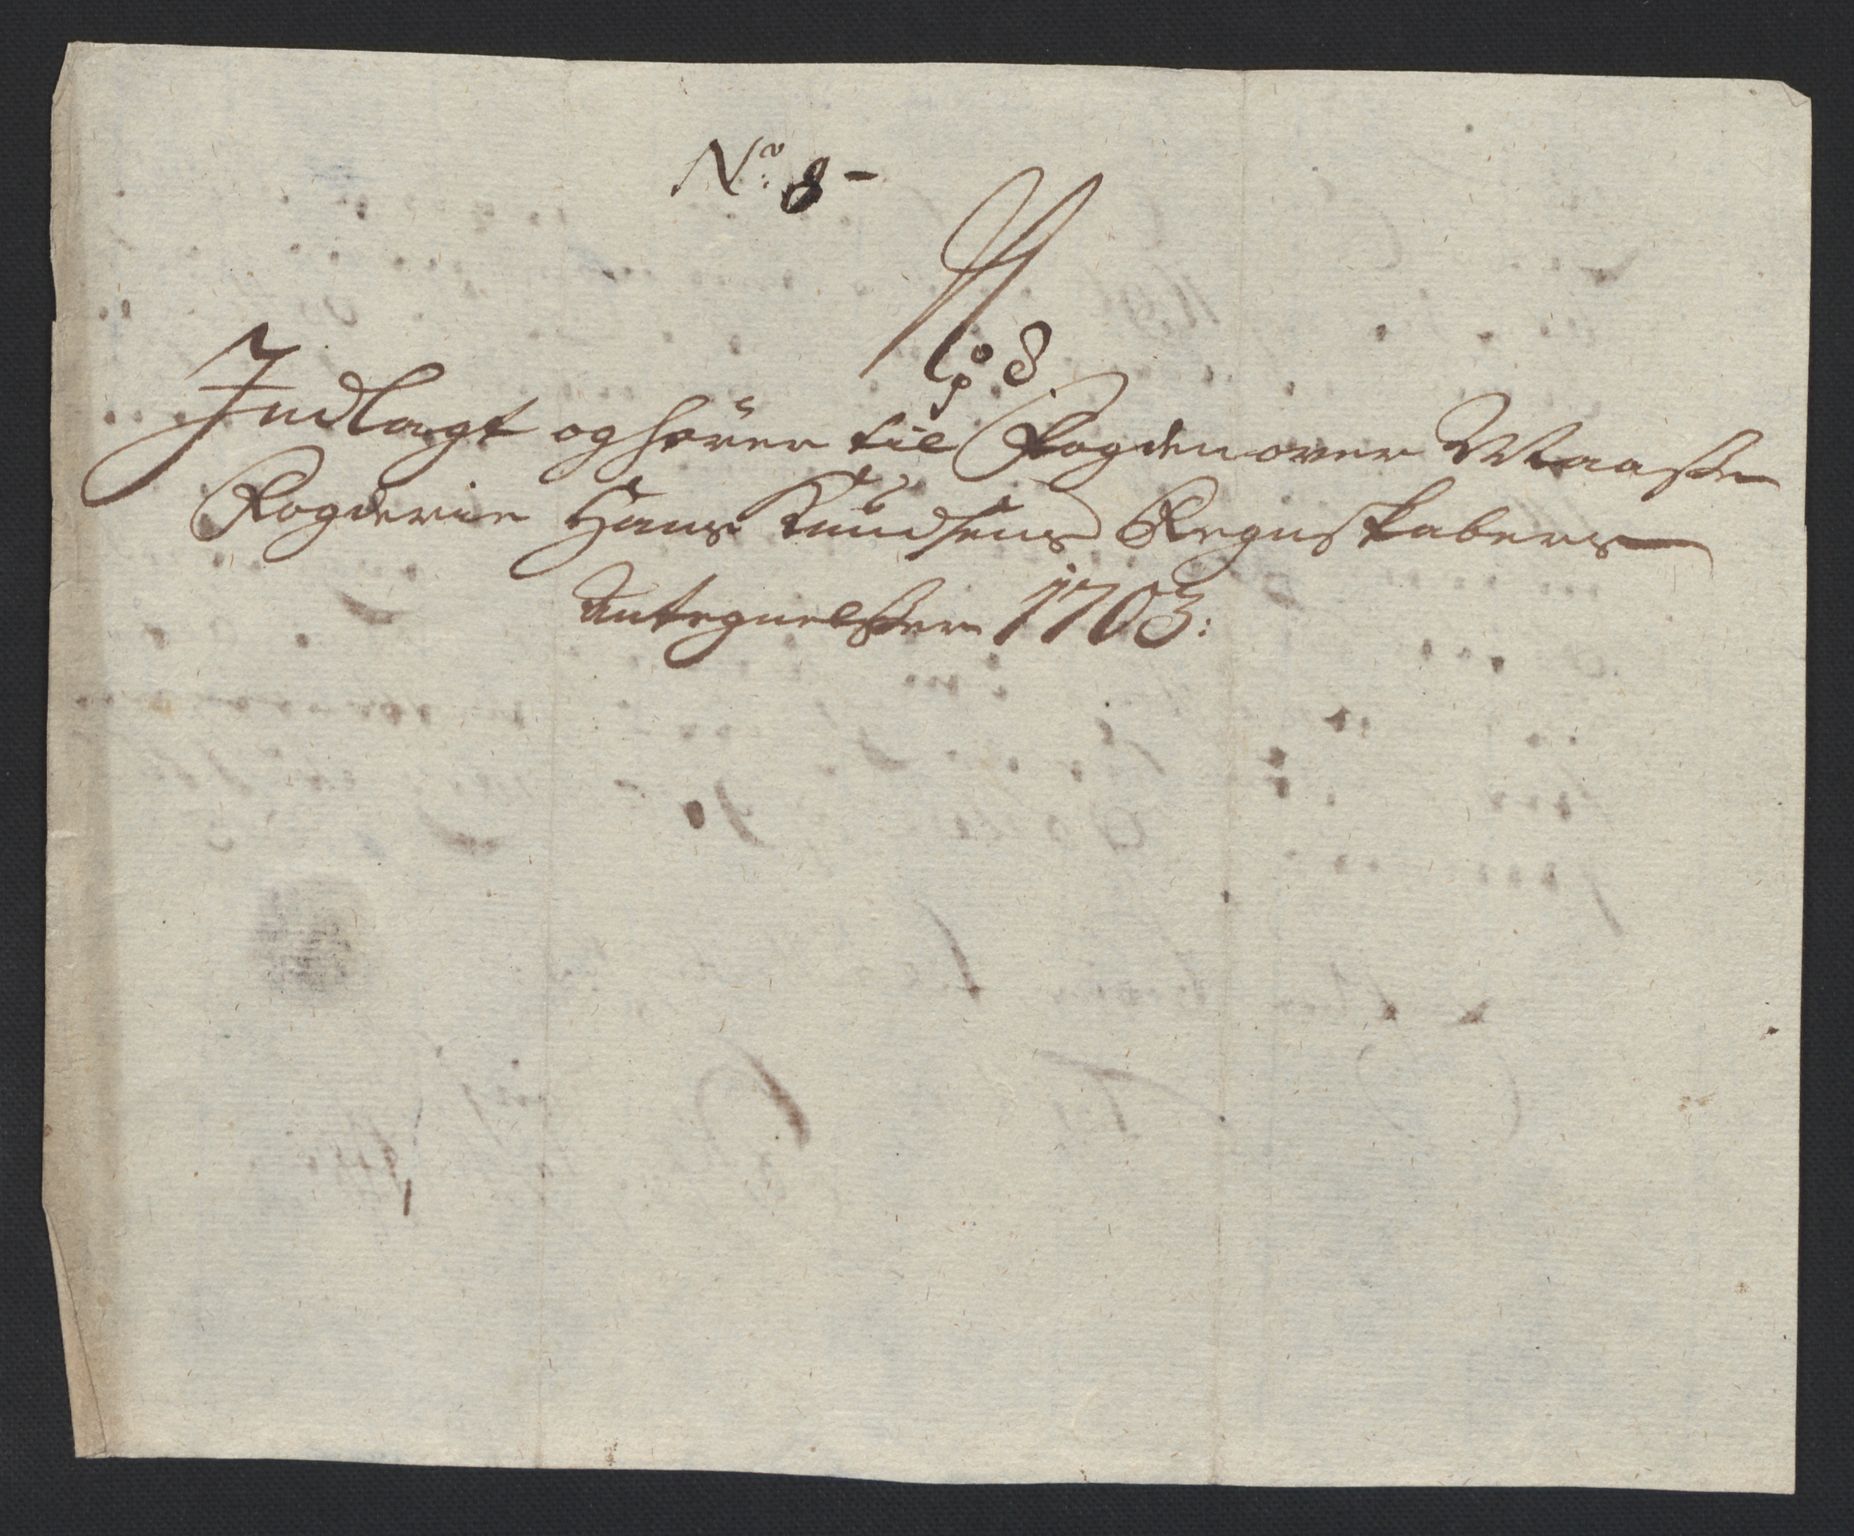 No: 8 -
No 8
Indlagt og hører til Fogden over Waasse
Fogderie Hans Knudsens Regnskabers
Antegnelsser 1703: